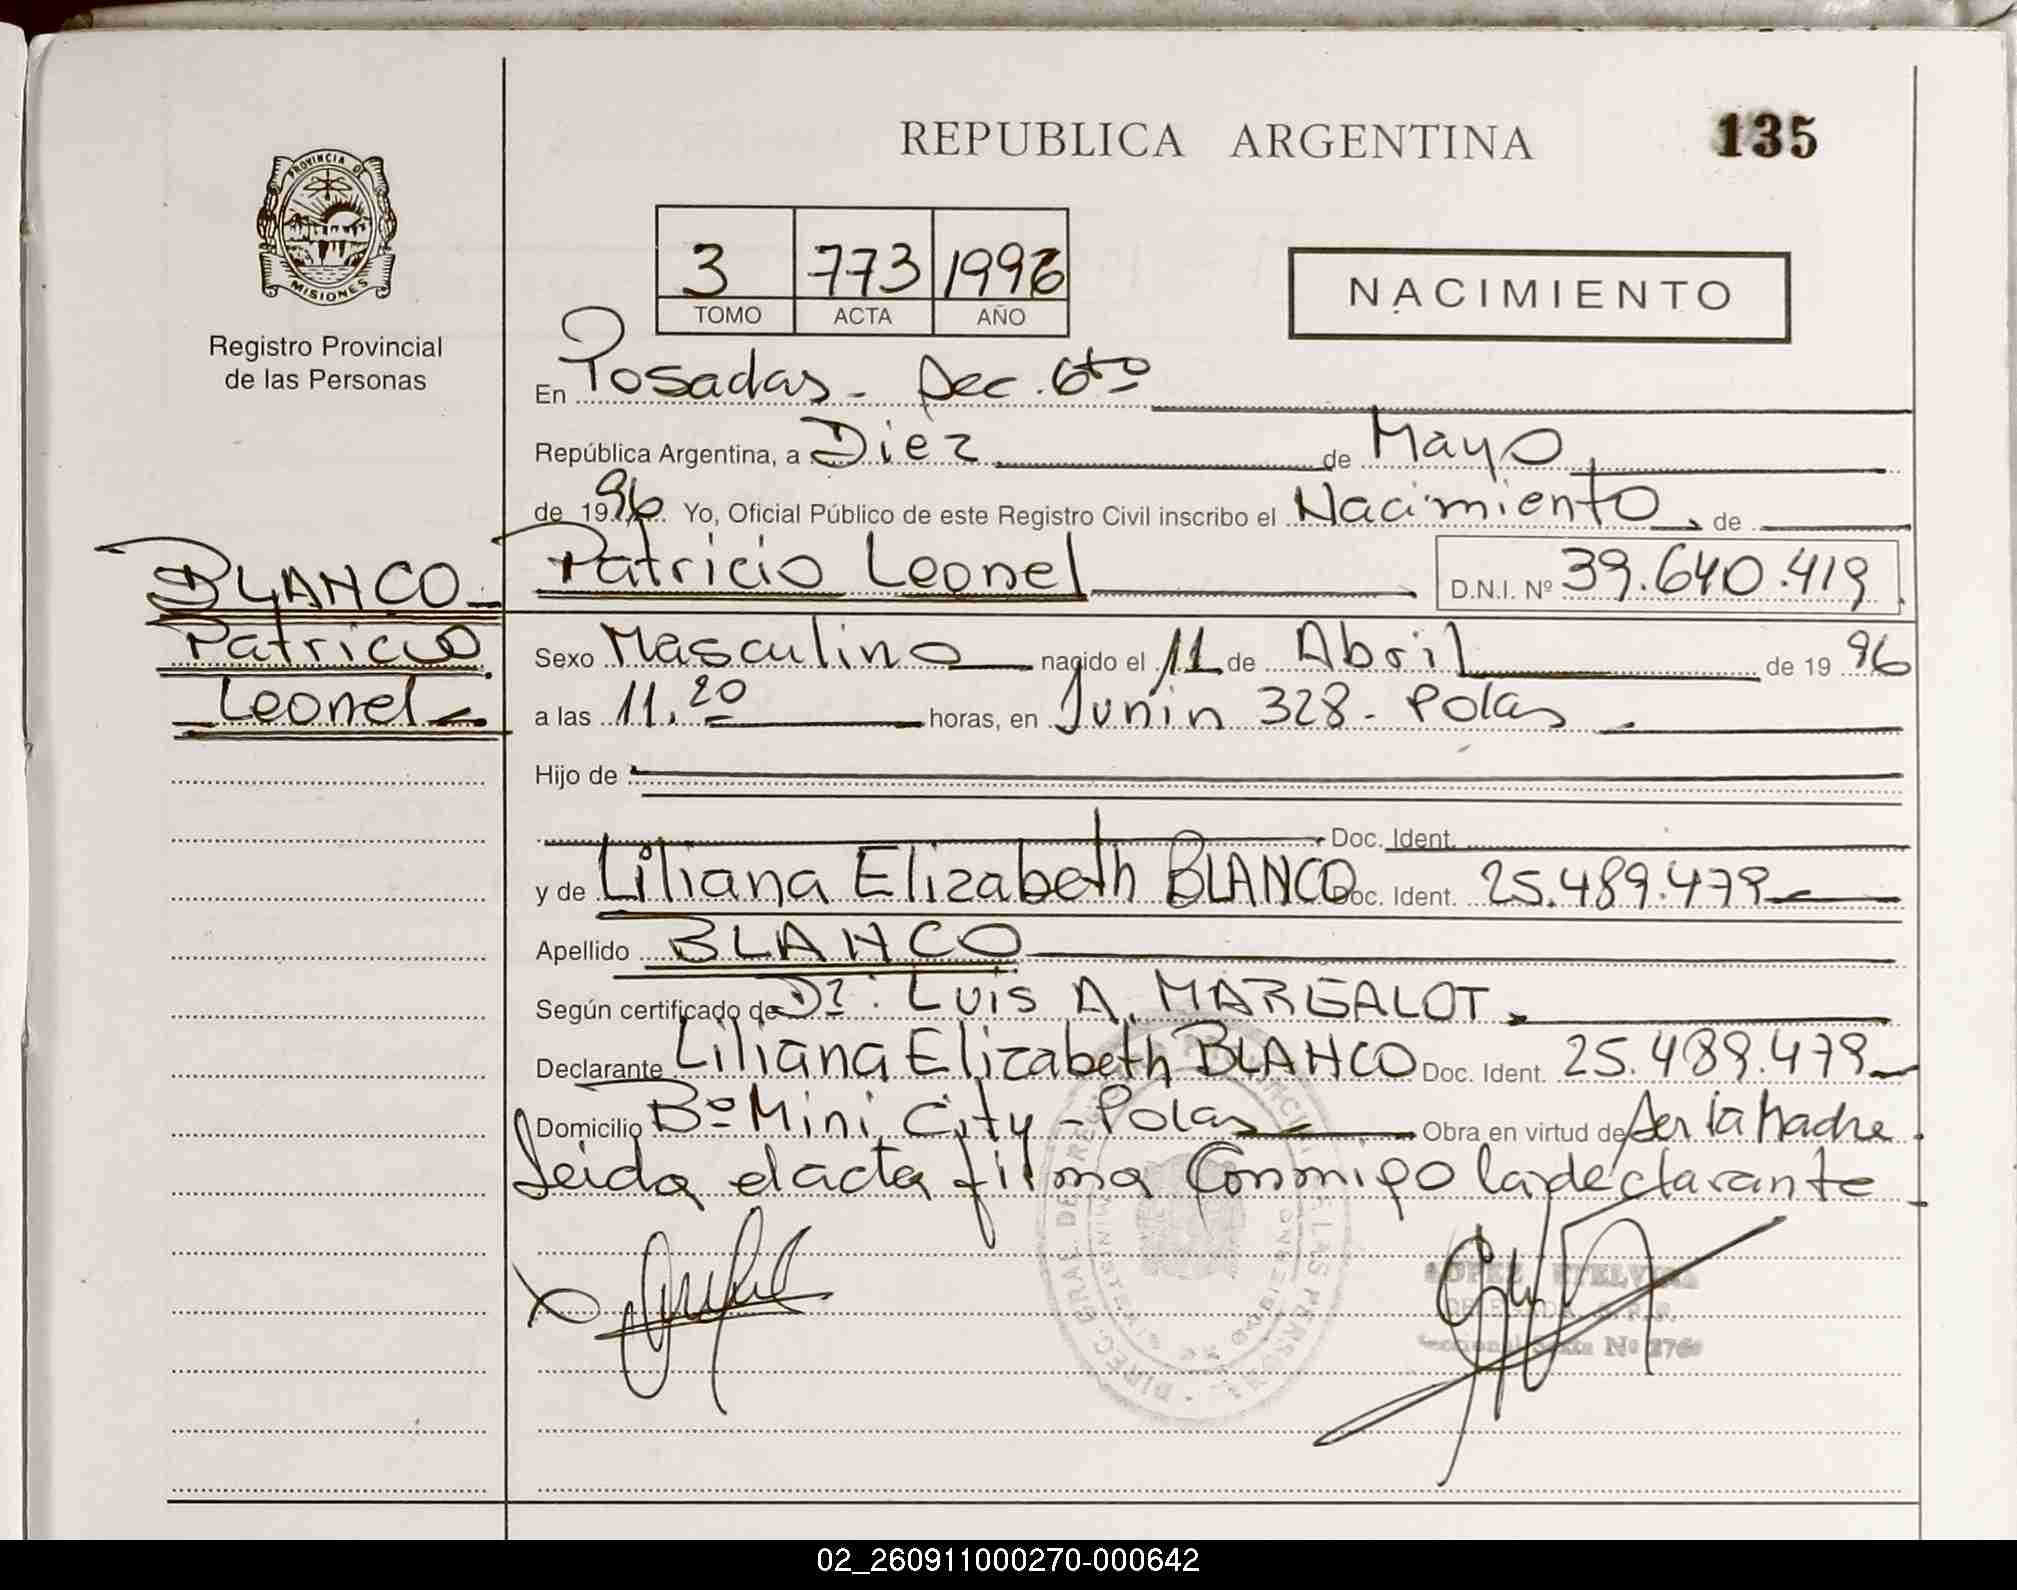 REPUBLICA ARGENTINA
135
PROVINCIA DE
MISIONES
Registro Provincial
de las Personas
3 773 1996
TOMO ACTA AÑO
NACIMIENTO
En Posadas - Sec. 6to
República Argentina, a Diez de Mayo
de 1996 Yo, Oficial Público de este Registro Civil inscribo el Nacimiento, de
Patricio Leonel D.N.I. Nº 39.640.419
BLANCO
Patricio
Leonel
Sexo Masculino nacido el 11 de Abril de 19 96
a las 11.20 horas, en Junin 328 - Pdas
Hijo de
Doc. Ident.
y de Liliana Elizabeth BLANCO Doc. Ident. 25.489.479
Apellido BLANCO
Según certificado de Dr. Luis A. MARGALOT
Declarante Liliana Elizabeth BLANCO Doc. Ident. 25.489.479
Domicilio Bº Mini City - Pdas Obra en virtud de Ser la Madre
Leida el acta firma Conmigo la declarante
LOPEZ ETELVINA
DELEGADA
Nº 276
02_260911000270-000642